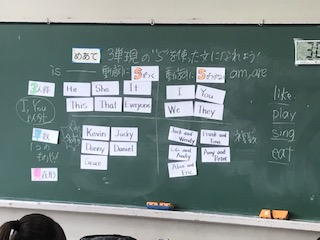 めあて 3単現の"s"を使った文になれよう!
is 動詞にsがつく 動詞にsがつかない am, are
3人称
I, You
以外
He She It
This That Everyone
I You
We They
単数
1つの
Kevin Jacky
Danny Daniel
Grace
Jack and Wendy
Frank and Tina
Lili and Andy
Amy and Peter
Alan and Eric
複数
like
play
sing
eat